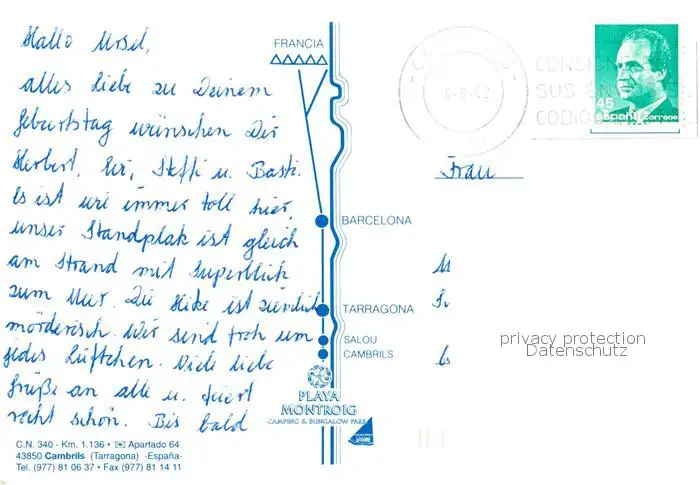 Hallo Ursel,
alles Liebe zu Deinem
Geburtstag wünschen Dir
Herbert, Evi, Steffi u. Basti.
Es ist wie immer toll hier,
unser Standplatz ist gleich
am Strand mit Superblick
zum Meer. Die Hitze ist ziemlich
mörderisch. Wir sind froh um
jedes Lüftchen. Viele liebe
Grüße an alle u. feiert
recht schön. Bis bald
FRANCIA
BARCELONA
TARRAGONA
SALOU
CAMBRILS
PLAYA
MONTROIG
CAMPING & BUNGALOW PARK
C.N. 340 - Km. 1.136 • Apartado 64
43850 Cambrils (Tarragona) -España-
Tel. (977) 81 06 37 • Fax (977) 81 14 11
CONSIGNE
SUS ENVIOS
CODIGO
45
España correos
Frau
privacy protection
Datenschutz